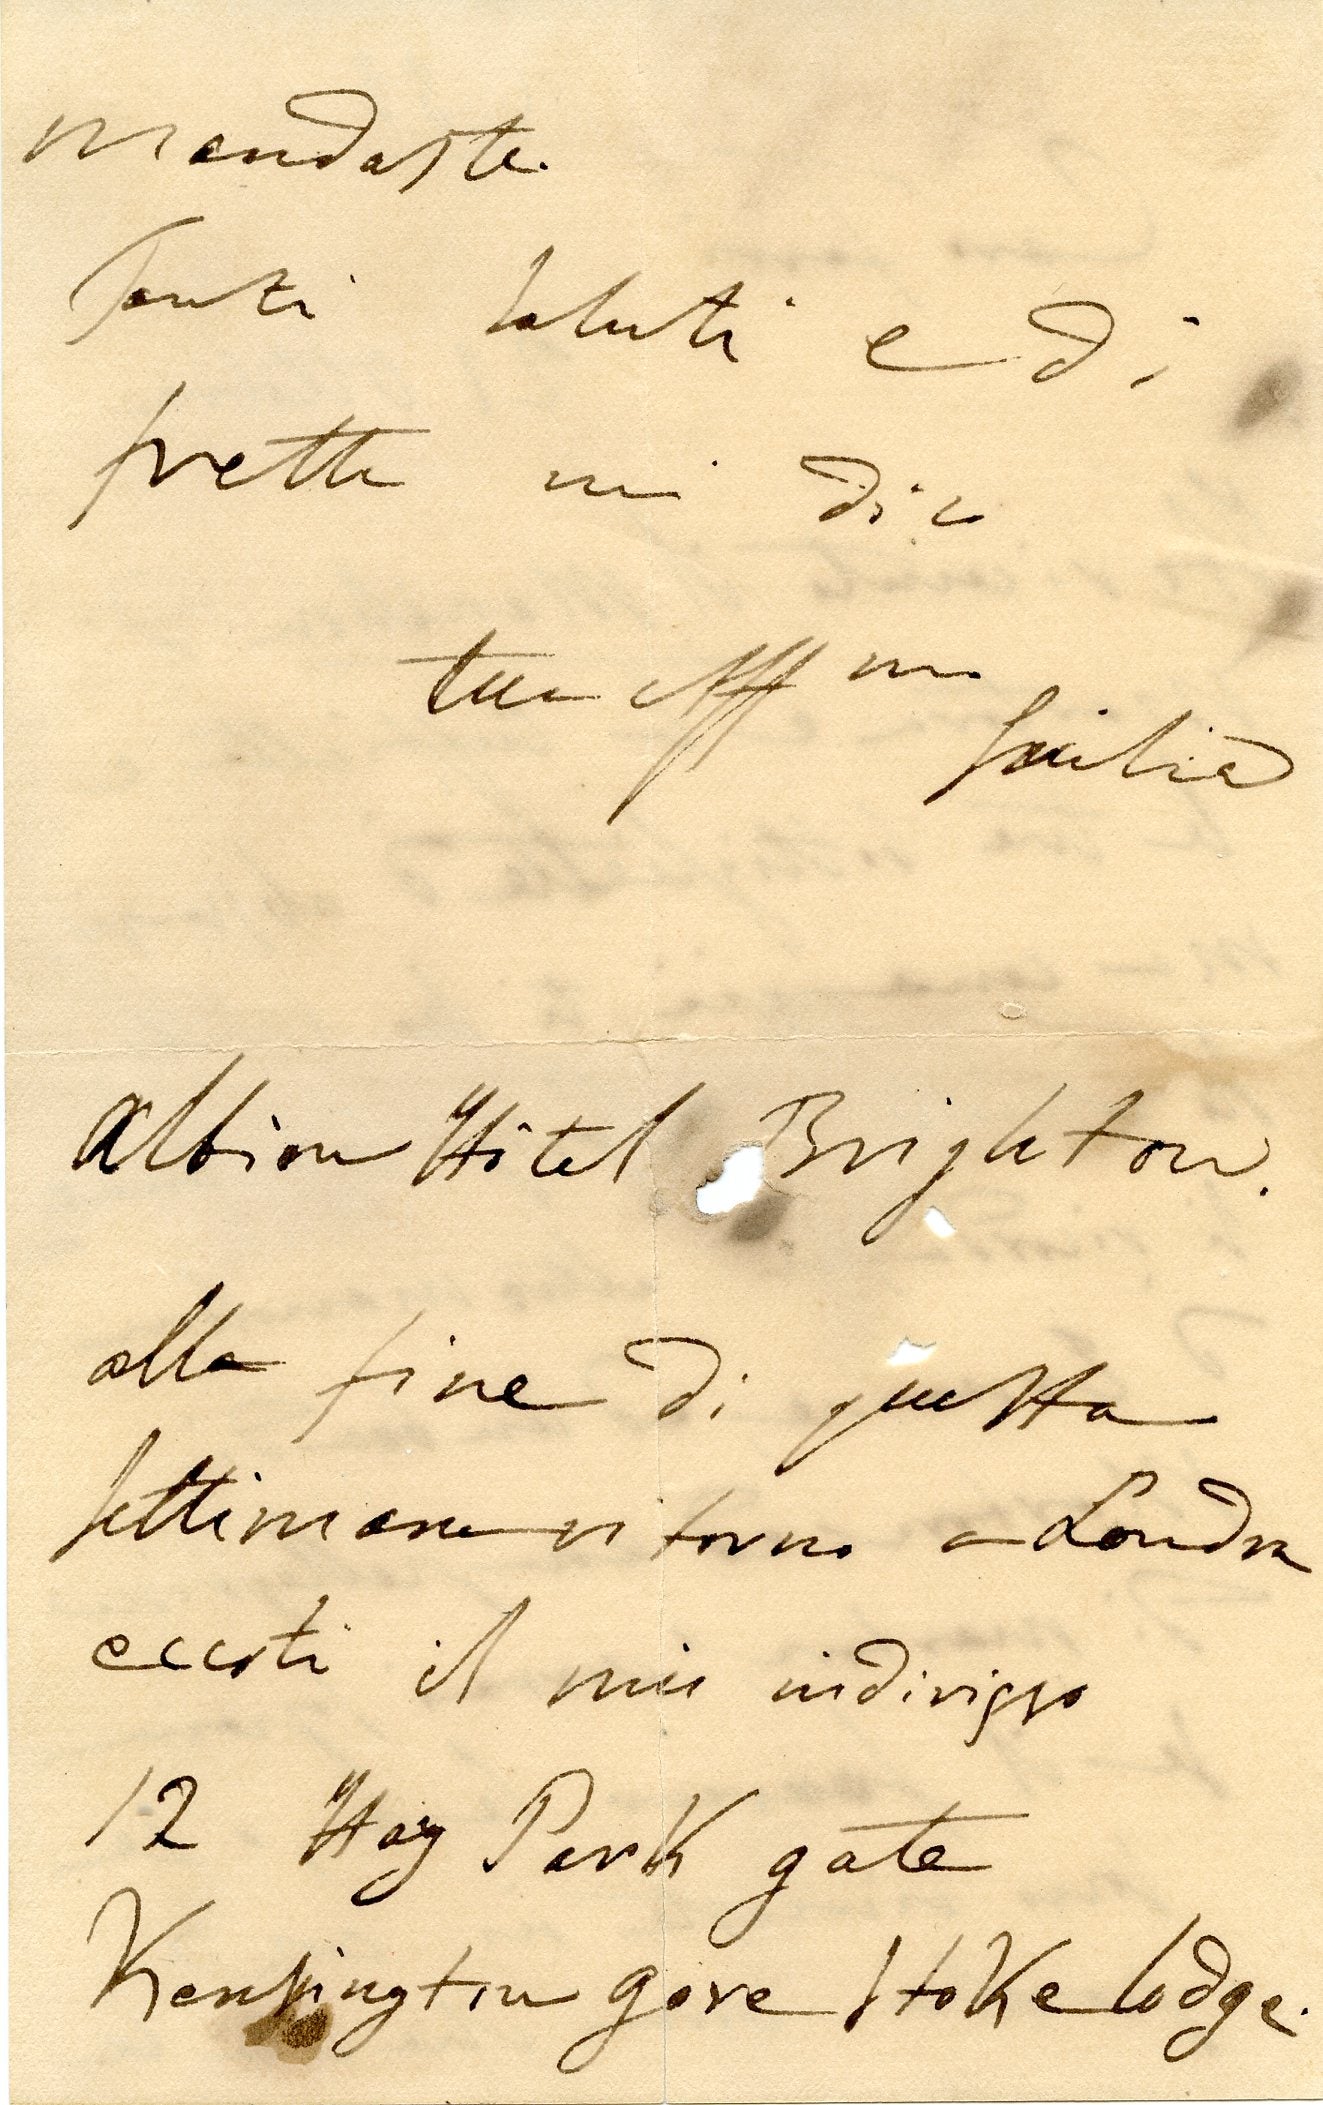 mandaste.
Tanti saluti e di
fretta mi dico
tua Aff ma
Giulia
Albion Hôtel Brighton.
alla fine di questa
settimana ritorno a Londra
eccoti il mio indirizzo
12 Hay Park gate
Kensington gore Stoke lodge.